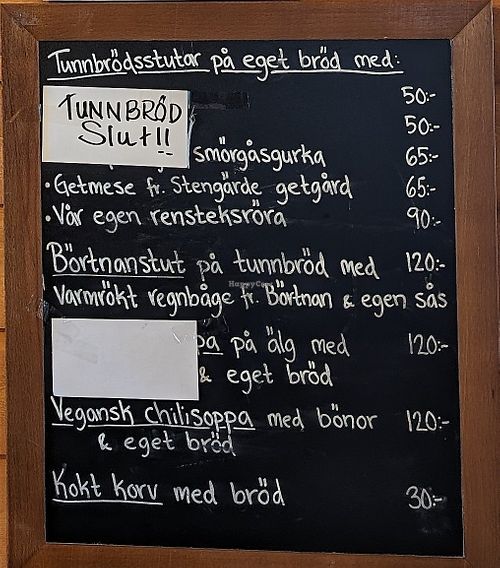 Tunnbrödsstutar på eget bröd med:
50:-
TUNNBRÖD
Slut!!
50:-
smörgåsgurka 65:-
• Getmese fr. Stengärde getgård 65:-
• Vår egen rensteksröra 90:-
Börtnanstut på tunnbröd med 120:-
HappyCow
Varmrökt regnbåge fr. Börtnan & egen sås
pa på älg med 120:-
& eget bröd
Vegansk chilisoppa med bönor 120:-
& eget bröd
Kokt korv med bröd 30:-